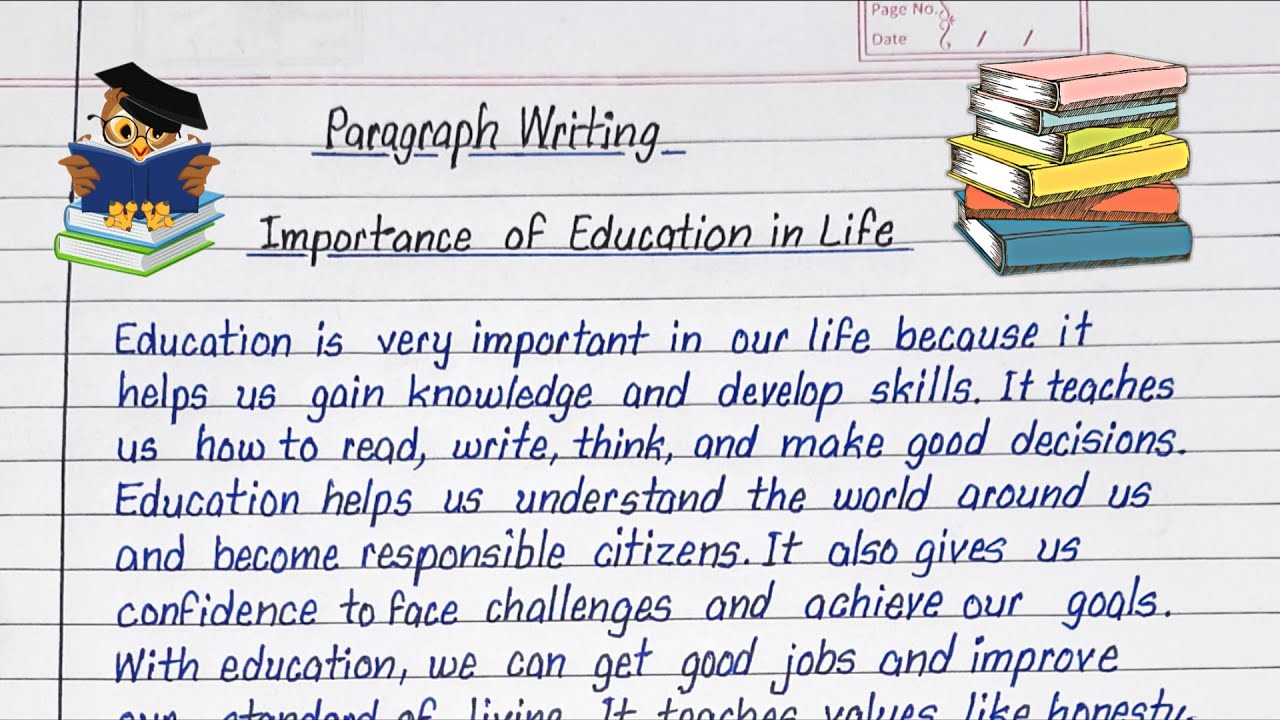 Page No.
Date / /
Paragraph Writing
Importance of Education in Life
Education is very important in our life because it
helps us gain knowledge and develop skills. It teaches
us how to read, write, think, and make good decisions.
Education helps us understand the world around us
and become responsible citizens. It also gives us
confidence to face challenges and achieve our goals.
With education, we can get good jobs and improve
our standard of living. It teaches values like honesty,